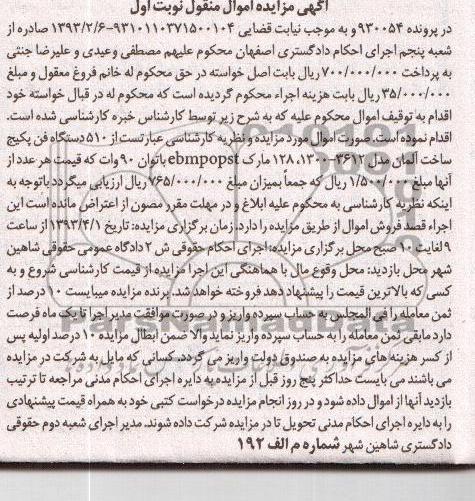 آگهی مزایده اموال منقول نوبت اول
در پرونده ۹۳۰۰۵۴ و به موجب نیابت قضایی ۹۳۱۰۱۱۰۳۷۱۵۰۰۱۰۴-۱۳۹۳/۲/۶ صادره از
شعبه پنجم اجرای احکام دادگستری اصفهان محکوم علیهم مصطفی وعیدی و علیرضا جنثی
به پرداخت ۷۰۰/۰۰۰/۰۰۰ ریال بابت اصل خواسته در حق محکوم له خانم فروغ معقول و مبلغ
۳۵/۰۰۰/۰۰۰ ریال بابت هزینه اجراء محکوم گردیده است که محکوم له در قبال خواسته خود
اقدام به توقیف اموال محکوم علیه که به شرح زیر توسط کارشناس خبره کارشناسی شده است.
اقدام نموده است. صورت اموال مورد مزایده و نظریه کارشناسی عبارتست از ۵۱۰ دستگاه فن پکیج
ساخت آلمان مدل ۳۶۱۲-۱۲۸،۱۳۰۰ مارک ebmpopst باتوان ۹۰ وات که قیمت هر عدد از
آنها مبلغ ۱/۵۰۰/۰۰۰ ریال که جمعاً بمیزان مبلغ ۷۶۵/۰۰۰/۰۰۰ ریال ارزیابی میگردد باتوجه به
اینکه نظریه کارشناسی به محکوم علیه ابلاغ و در مهلت مقرر مصون از اعتراض مانده است این
اجراء قصد فروش اموال از طریق مزایده را دارد. زمان برگزاری مزایده: تاریخ ۱۳۹۳/۴/۱ از ساعت
۹ لغایت ۱۰ صبح محل برگزاری مزایده: اجرای احکام حقوقی ش ۲ دادگاه عمومی حقوقی شاهین
شهر محل بازدید: محل وقوع مال با هماهنگی این اجرا مزایده از قیمت کارشناسی شروع و به
کسی که بالاترین قیمت را پیشنهاد دهد فروخته خواهد شد. برنده مزایده میبایست ۱۰ درصد از
ثمن معامله را فی المجلس به حساب سپرده واریز و در صورت موافقت مدیر اجرا تا یک ماه فرصت
دارد مابقی ثمن معامله را به حساب سپرده واریز نماید والا ضمن ابطال مزایده ۱۰ درصد اولیه پس
از کسر هزینه های مزایده به صندوق دولت واریز می گردد. کسانی که مایل به شرکت در مزایده
می باشند می بایست حداکثر پنج روز قبل از مزایده به دایره اجرای احکام مدنی مراجعه تا ترتیب
بازدید آنها از اموال داده شود و در روز انجام مزایده درخواست کتبی خود به همراه قیمت پیشنهادی
را به دایره اجرای احکام مدنی تحویل تا در مزایده شرکت داده شوند. مدیر اجرای شعبه دوم حقوقی
دادگستری شاهین شهر شماره م الف ۱۹۲
ParsNamadData